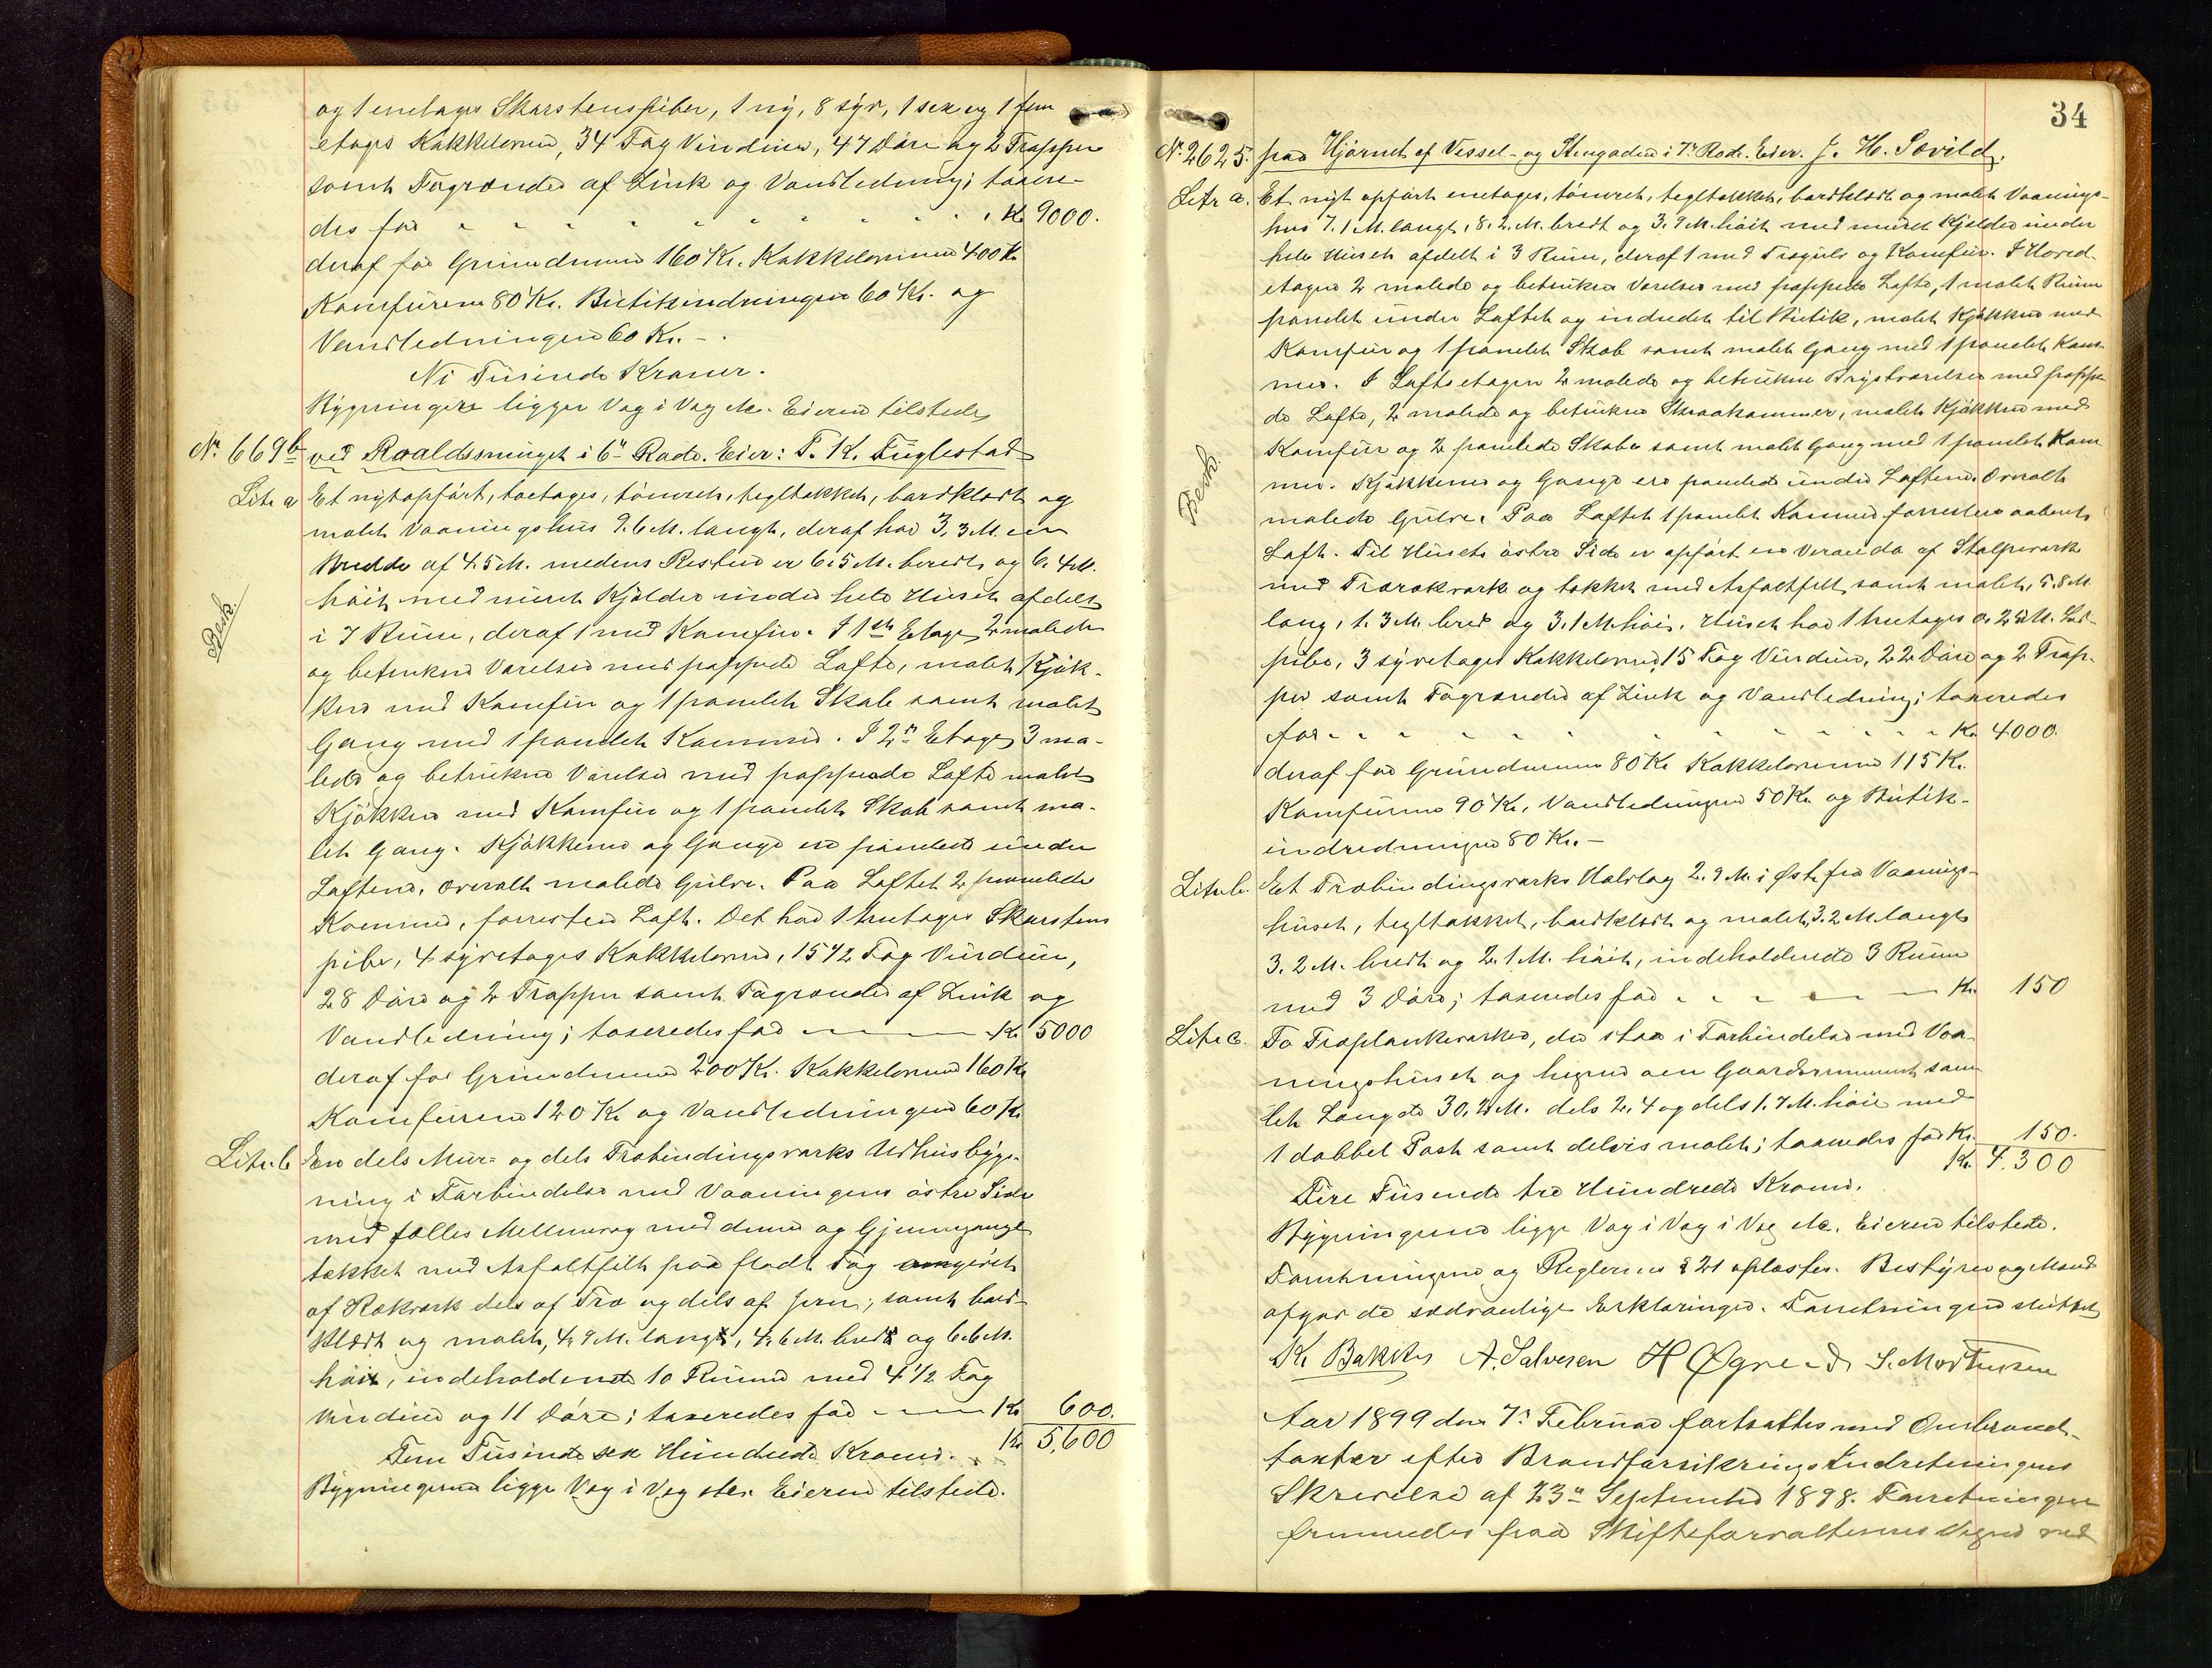 og 1 enetages Skorstenspiber, 1 ny, 8 syv, 1 sex og 1 fem
etages Kakkelovne, 34 Fag Vinduer, 47 Døre og 2 Trapper
samt Tagrender af Zink og Vandledning; taxere-
des for " " " " " Kr. 9000.
deraf for Grundmuren 160 Kr. Kakkelovnene 400 Kr.
Komfurene 80 Kr. Butikindredningen 60 Kr. og
Vandledningen 60 Kr. -
Ni Tusinde Kroner.
Bygningen ligger Væg i Væg etc. Eieren tilstede
No. 669b ved Roaldssmuget i 6te Rode. Eier: T. K. Fuglestad
Litr. a Et nytopført, toetages, tømret, tegltækket, bordklædt og
malet Vaaningshus 9.6 M. langt, deraf har 3,3 M. en
Bredde af 4.5 M. medens Resten er 6.5 M. bredt og 6.4 M.
høit med muret Kjælder under hele Huset afdelt
i 7 Rum, deraf 1 med Komfur. I 1ste Etage 2 malede
og betrukne Værelser med pappede Lofte, malet Kjøk-
ken med Komfur og 1 panelet Skab samt malet
Gang med 1 panelet Kammer. I 2n Etage 3 ma-
lede og betrukne Værelser med pappede Lofte malet
Kjøkken med Komfur og 1 panelet Skab samt ma-
let Gang. Kjøkkenerne og Gange ere panelede under
Loftene. Overalt malede Gulve. Paa Loftet 2 panelede
Kammer, forresten Loft. Det har 1 toetages Skorstens
pibe, 4 syvetages Kakkelovne, 15 1/2 Fag Vinduer,
28 Døre og 2 Trapper samt Tagrender af Zink og
Vandledning; taxeredes for — Kr. 5000
deraf for Grundmuren 200 Kr. Kakkelovnene 160 Kr.
Komfurene 120 Kr. og Vandledningen 60 Kr.
Litr. b En dels Mur- og dels Træbindingsværks Udhusbyg-
ning i Forbindelse med Vaaningens østre Side
med fælles Mellemvæg med denne og Gjennemgang
tækket med Asfaltfilt paa fladt Tag omgivet
af Rækværk dels af Træ og dels af Jern, samt bord-
klædt og malet, 4,9 M. langt, 4,6 M. bredt og 6.6 M.
høit, indeholdende 10 Rum med 4 1/2 Fag
Vinduer og 11 Døre; taxeredes for — Kr. 600.
Kr. 5,600
Fem Tusinde sex Hundrede Kroner.
Bygningerne ligge Væg i Væg etc. Eieren tilstede.
Besk.
34
No. 2625. paa Hjørnet af Vessel- og Stengaden i 7de Rode. Eier. J. H. Sævild.
Litr a. Et nyt opført enetages, tømret, tegltækket, bordklædt og malet Vaanings-
hus 7.1 M. langt, 8.2 M. bredt og 3.9 M. høit med muret Kjælder under
hele Huset afdelt i 3 Rum, deraf 1 med Trægulv og Komfur. I Hoved-
etagen 2 malede og betrukne Værelser med pappede Lofte, 1 malet Rum
panelet under Loftet og indredet til Butik, malet Kjøkken med
Komfur og 1 panelet Skab samt malet Gang med 1 panelet Kam-
mer. I Loftsetagen 2 malede og betrukne Brystværelser med pappe-
de Lofte, 2 malede og betrukne Skraakammer, malet Kjøkken med
Komfur og 2 panelede Skabe samt malet Gang med 1 panelet Kam
mer. Kjøkkenerne og Gange ere panelede under Loftene. Overalt
malede Gulve. Paa Loftet 1 panelet Kammer forresten aabent
Loft. Til Husets østre Side er opført en Veranda af Stolpeværk
med Trærækværk og tækket med Asfaltfilt samt malet, 5.8 M.
lang, 1.3 M. bred og 3.1 M. høi. Huset har 1 toetages
pibe, 3 syvetages Kakkelovne, 15 Fag Vinduer, 22 Døre og 2 Trap-
per samt Tagrender af Zink og Vandledning; taxeredes
for - - - - Kr. 4000.
deraf for Grundmuren 80 Kr. Kakkelovnene 115 Kr.
Komfurene 90 Kr. Vandledningen 50 Kr. og Butik-
indredningen 80 Kr. -
Litr. b. Et Træbindingsværks Halvtag 2.9 M. i Øst fra Vaanings-
huset, tegltækket, bordklædt og malet, 3.2 M. langt
3.2 M. bredt og 2.1 M. høit, indeholdende 3 Rum
med 3 Døre; taxeredes for — Kr. 150
Litr. c. To Træplankeværker, der staa i Forbindelse med Vaa-
ningshuset og hegne om Gaardsrummet sam-
let Længde 30.2 M. dels 2.4 og dels 1.7 M. høie med
1 dobbel Port samt delvis malet; taxeredes for Kr. 150.
Kr. 4.300
Fire Tusinde tre Hundrede Kroner.
Bygningerne ligge Væg i Væg i Væg etc. Eieren tilstede.
Forretningen og Reglernes § 21 oplæstes. Bestyrer og Mænd
afgav de sædvanlige Erklæringer. Forretningen sluttet
K. Bakke A. Salvesen H Øgreid S. Mortensen
Aar 1899 den 7de Februar fortsattes med Ombrands-
taxter efter Brandforsikrings Indretningens
Skrivelse af 23de September 1898. Forretningen
fremmedes paa Skifteforvalterens Vegne ved
Besk.